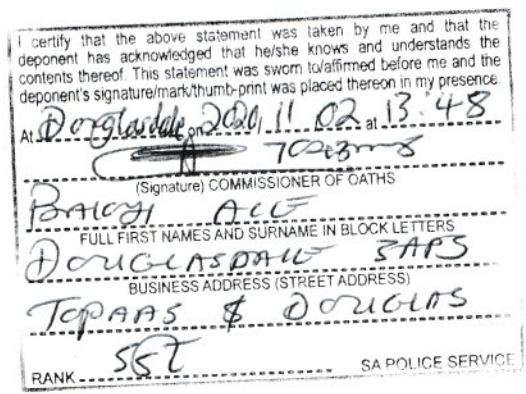 I certify that the above statement was taken by me and that the
deponent has acknowledged that he/she knows and understands the
contents thereof. This statement was sworn to/affirmed before me and the
deponent's signature/mark/thumb-print was placed thereon in my presence.
At Douglasdale on 2020/11/02 at 13:48
(Signature) COMMISSIONER OF OATHS
FULL FIRST NAMES AND SURNAME IN BLOCK LETTERS
DOUGLASDALE SAPS
BUSINESS ADDRESS (STREET ADDRESS)
& DOUGLAS
RANK
SA POLICE SERVICE